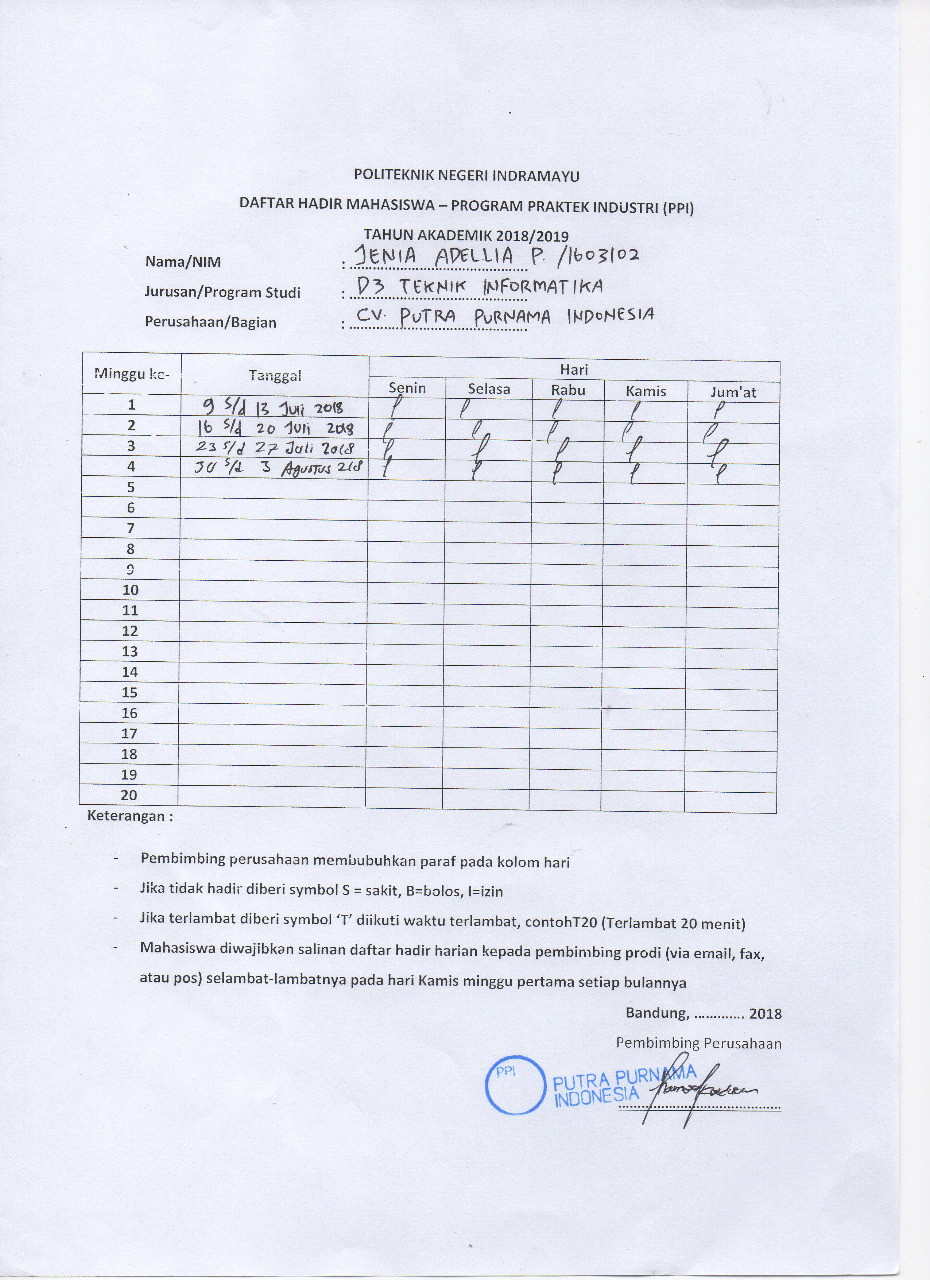 POLITEKNIK NEGERI INDRAMAYU
DAFTAR HADIR MAHASISWA – PROGRAM PRAKTEK INDUSTRI (PPI)
TAHUN AKADEMIK 2018/2019
Nama/NIM : JENIA ADELLIA P. /1603102
Jurusan/Program Studi : D3 TEKNIK INFORMATIKA
Perusahaan/Bagian : CV. PUTRA PURNAMA INDONESIA
Minggu ke- Tanggal Hari
Senin Selasa Rabu Kamis Jum'at
1 9 S/d 13 Juli 2018
2 16 S/d 20 Juli 2018
3 23 S/d 27 Juli 2018
4 30 S/d 3 Agustus 2018
5
6
7
8
9
10
11
12
13
14
15
16
17
18
19
20
Keterangan :
- Pembimbing perusahaan membubuhkan paraf pada kolom hari
- Jika tidak hadir diberi symbol S = sakit, B=bolos, I=izin
- Jika terlambat diberi symbol ‘T’ diikuti waktu terlambat, contohT20 (Terlambat 20 menit)
- Mahasiswa diwajibkan salinan daftar hadir harian kepada pembimbing prodi (via email, fax,
atau pos) selambat-lambatnya pada hari Kamis minggu pertama setiap bulannya
Bandung, ............. 2018
Pembimbing Perusahaan
PPI
PUTRA PURNAMA
INDONESIA